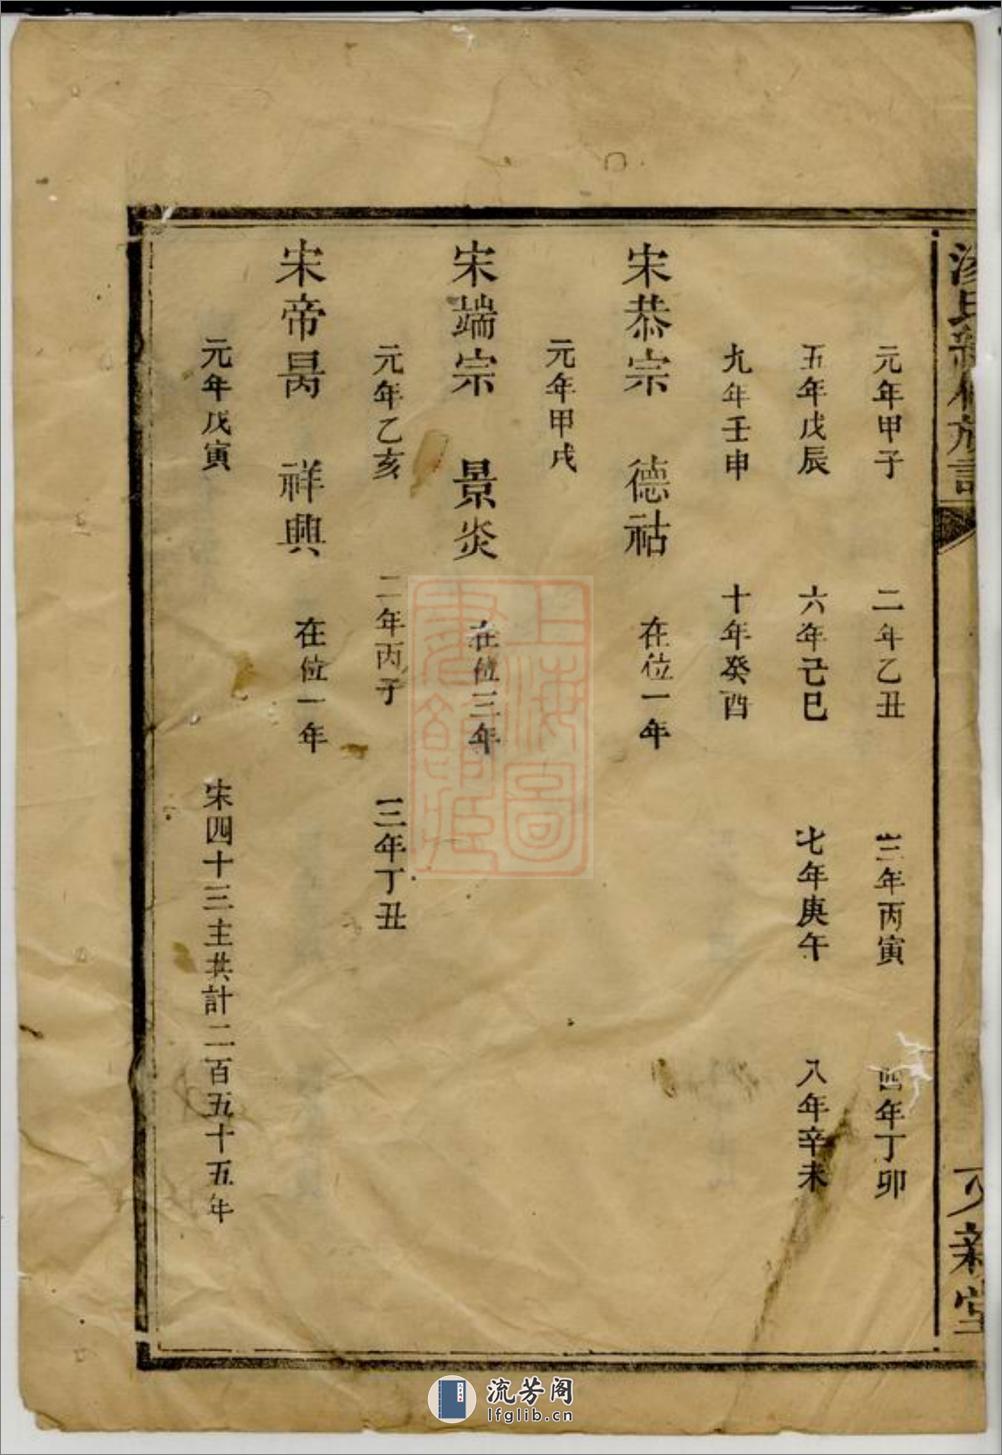 氏 族譜
新堂
元年甲子 二年乙丑 三年丙寅 四年丁卯
五年戊辰 六年己巳 七年庚午 八年辛未
九年壬申 十年癸酉
宋恭宗 德祜 在位一年
元年甲戌
宋端宗 景炎 在位三年
元年乙亥 二年丙子 三年丁丑
宋帝昺 祥興 在位一年
元年戊寅 宋四十三主共計二百五十五年
上海圖書館藏
流芳阁
lfglib.cn